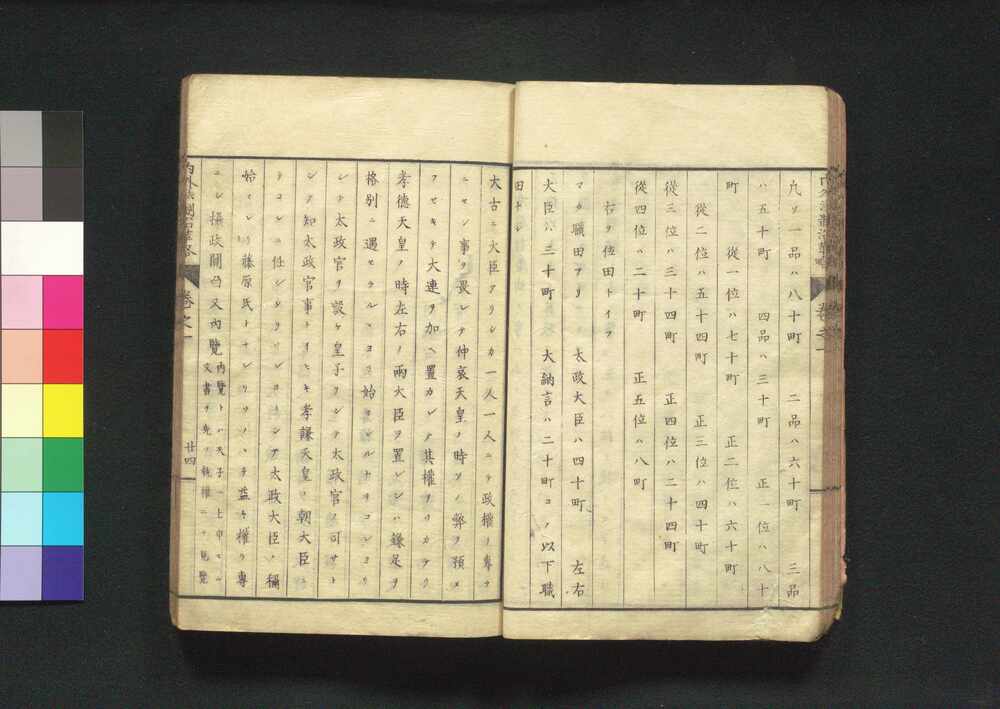 凡ソ一品ハ八十町　二品ハ六十町　三品
ハ五十町　四品ハ三十町　正一位ハ八十
町　從一位ハ七十町　正二位ハ六十町
從二位ハ五十四町　正三位ハ四十町
從三位ハ三十四町　正四位ハ二十四町
從四位ハ二十町　正五位ハ八町
右ヲ位田トイフ
マタ職田アリ　太政大臣ハ四十町　左右
大臣ハ三十町　大納言ハ二十町コノ以下職
田ナシ
大古ニ大臣アリシカ一人一人ニテ政權ヲ專ラ
ニセン事ヲ畏レテ仲哀天皇ノ時ソノ弊ヲ預メ
フセキテ大連ヲ加ヘ置カレ其權ヲワカテリ
孝德天皇ノ時左右ノ兩大臣ヲ置レシハ鎌足ヲ
格別ニ遇セラル
シテ太政官ヲ設ケ皇子ヲシテ太政官ヲ司サト
シヲ知太政官事トイヒキ孝謙天皇ノ朝大臣
シテ太政大臣ノ稱
始マレリ藤原氏 益々權ヲ專
ニシ攝政關白又內覽
內覽トハ天子ヘ上申スル
文書ヲ先ツ執權ニテ覽
卷之一
廿四